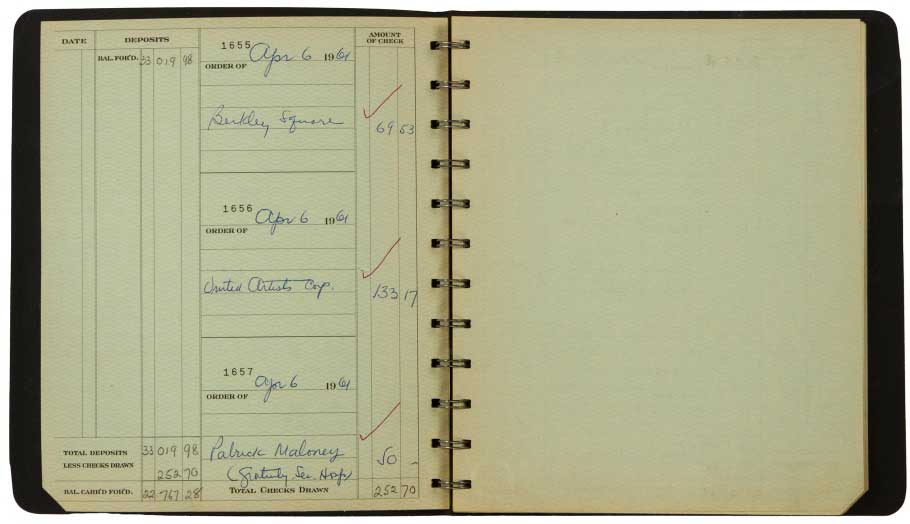 DATE DEPOSITS AMOUNT OF CHECK
BAL. FOR'D. 33 019 98
1655 Apr 6 1961
ORDER OF
Berkley Square 69 53
1656 Apr 6 1961
ORDER OF
United Artists Corp. 133 17
1657 Apr 6 1961
ORDER OF
TOTAL DEPOSITS 33 019 98 Patrick Maloney 50 –
LESS CHECKS DRAWN 252 70 (Gratuity
BAL. CAR'D FOR'D. 22 767 28 TOTAL CHECKS DRAWN 252 70